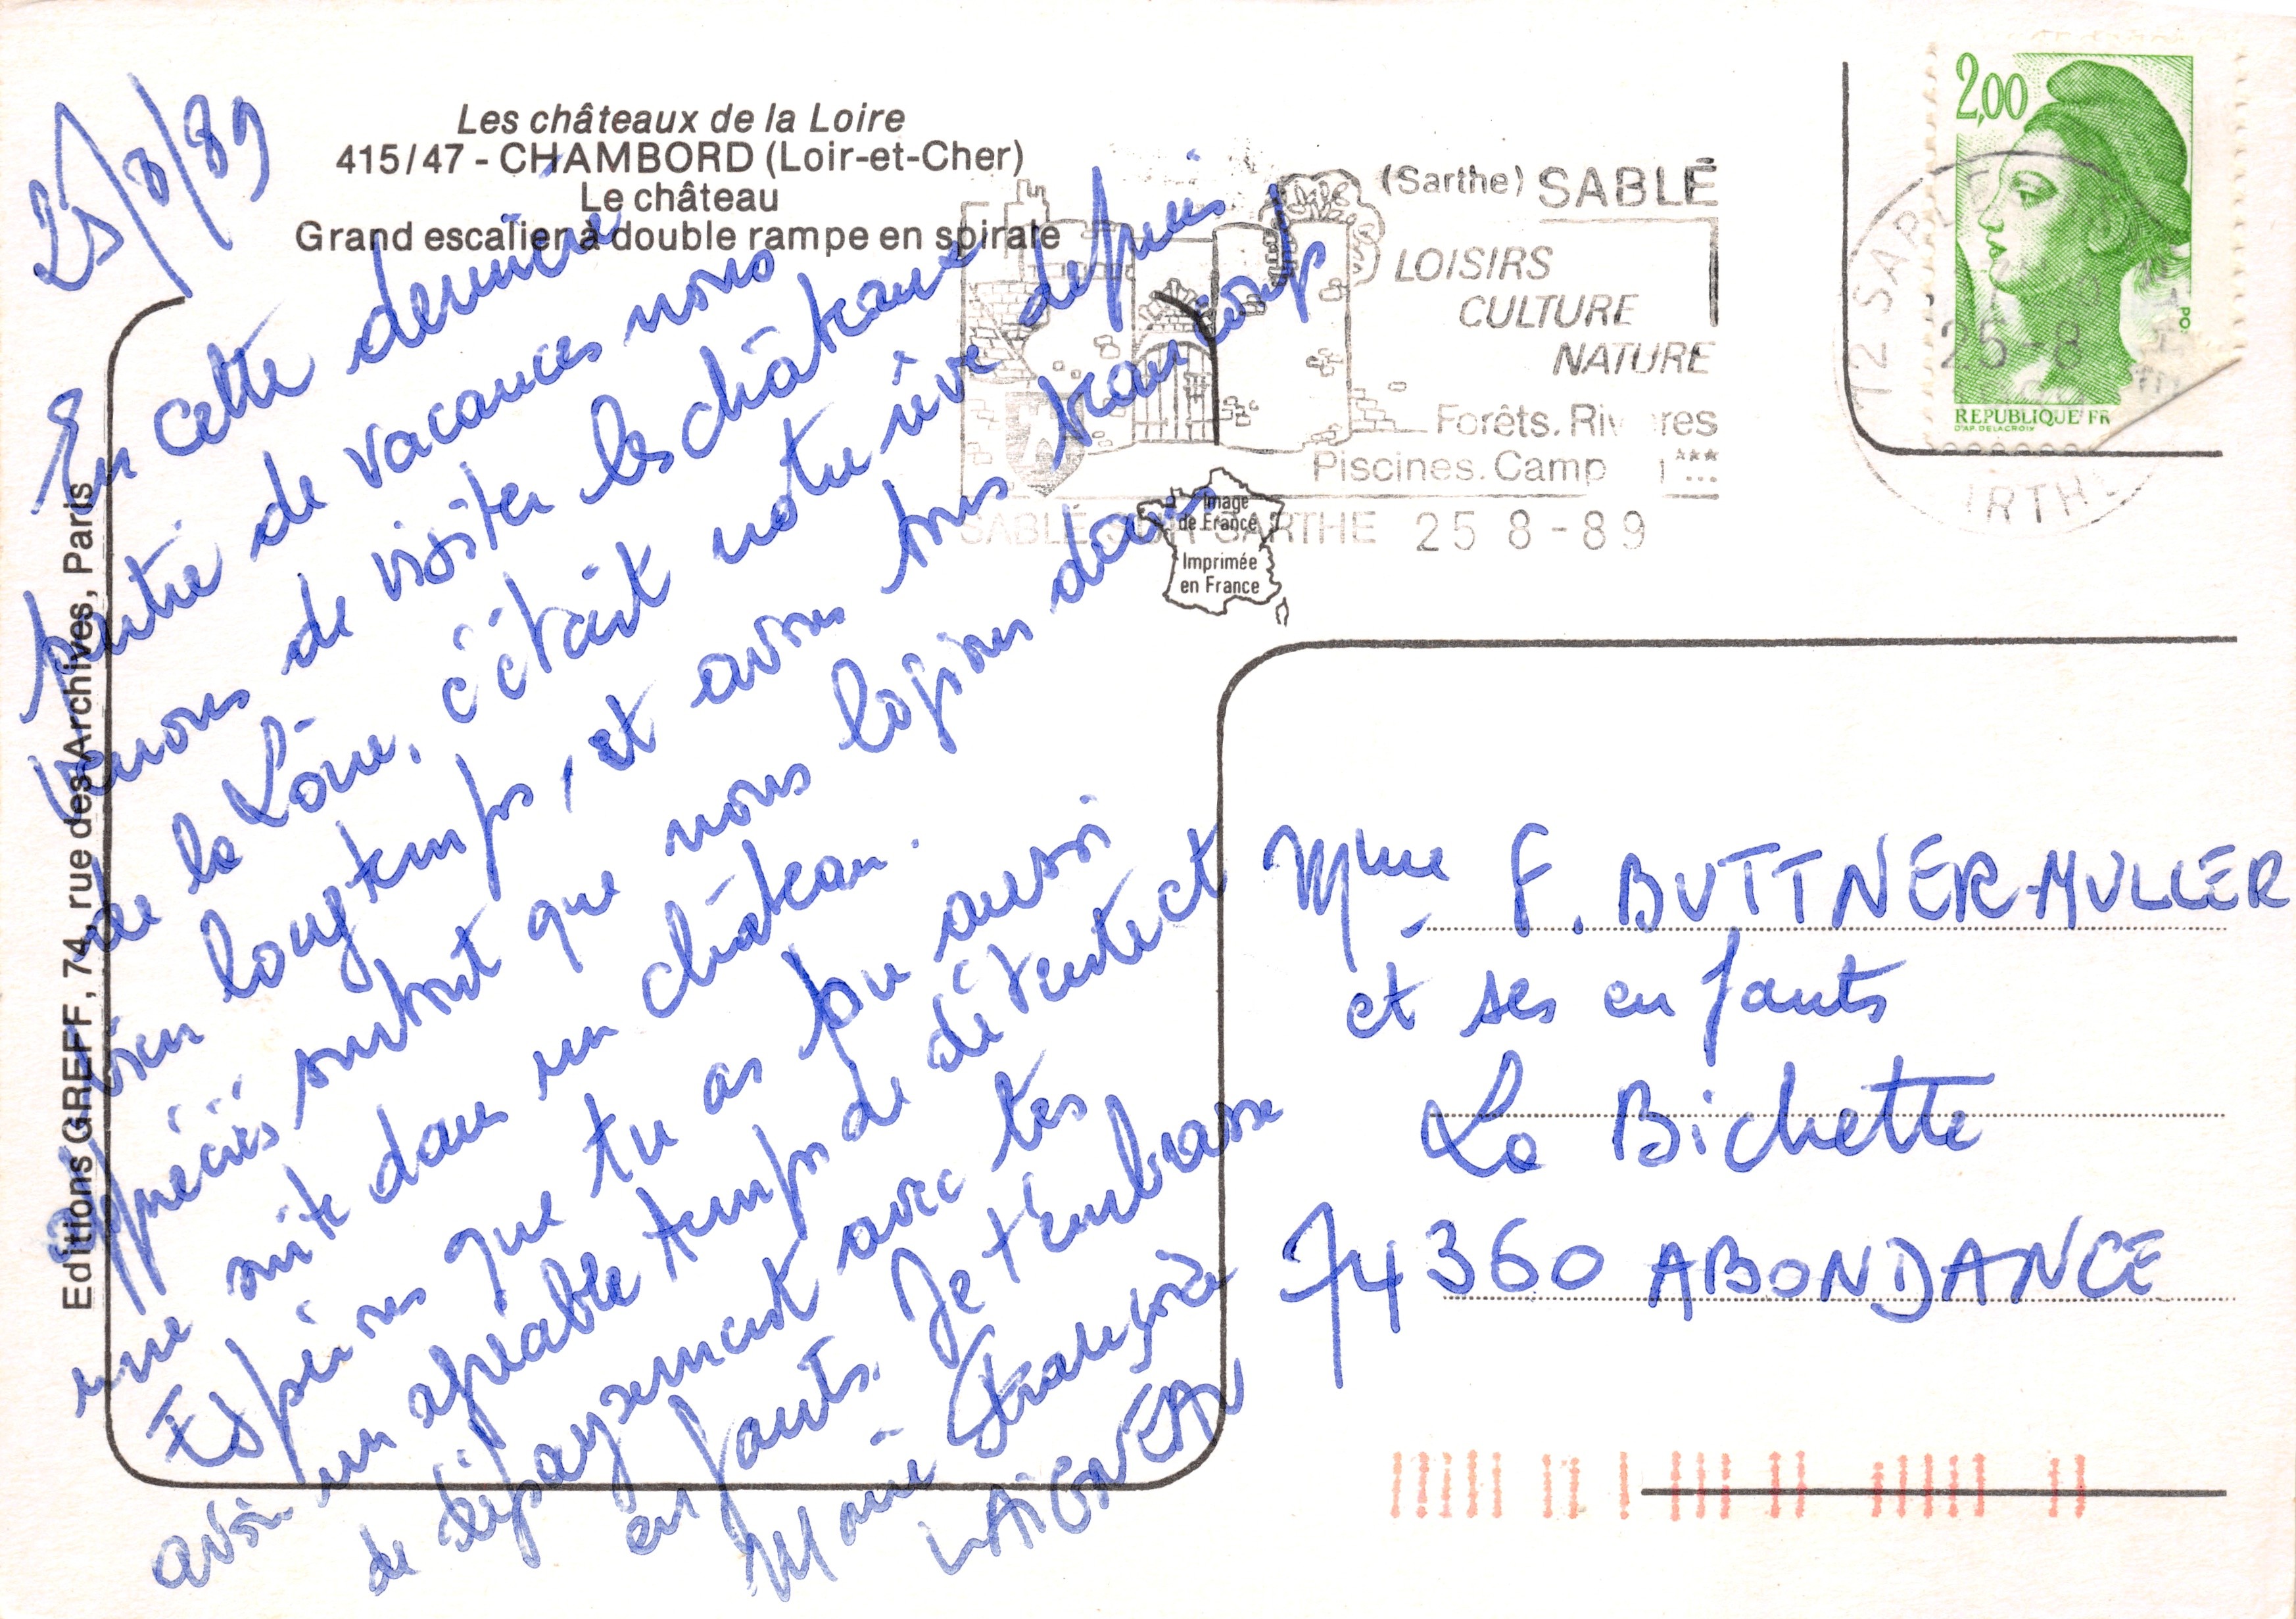 25/8/89
Les châteaux de la Loire
415/47 - CHAMBORD (Loir-et-Cher)
Le château
Grand escalier à double rampe en spirale
En cette dernière
partie de vacances nous
venons de visiter les châteaux
de la Loire, c'était notre rêve depuis
bien longtemps, et avons tous beaucoup
appréciés surtout que nous logions dans
une suite dans un château.
Espérons que tu as pu aussi
avoir un agréable temps de détente et
de dépaysement avec tes
enfants. Je t'embrasse
Marie Françoise
LAIGNEAU
Editions GREFF, 74, rue des Archives, Paris
(Sarthe) SABLÉ
LOISIRS
CULTURE
NATURE
Forêts. Riv res
Piscines. Camp ***
SABLÉ-SUR-SARTHE 25 8-89
Image
de France
Imprimée
en France
2,00
REPUBLIQUE FR
D'AP. DELACROIX
PO
72 SABL
25-8
ARTHE
Mme F. BUTTNER-MULLER
et ses enfants
La Bichette
74360 ABONDANCE